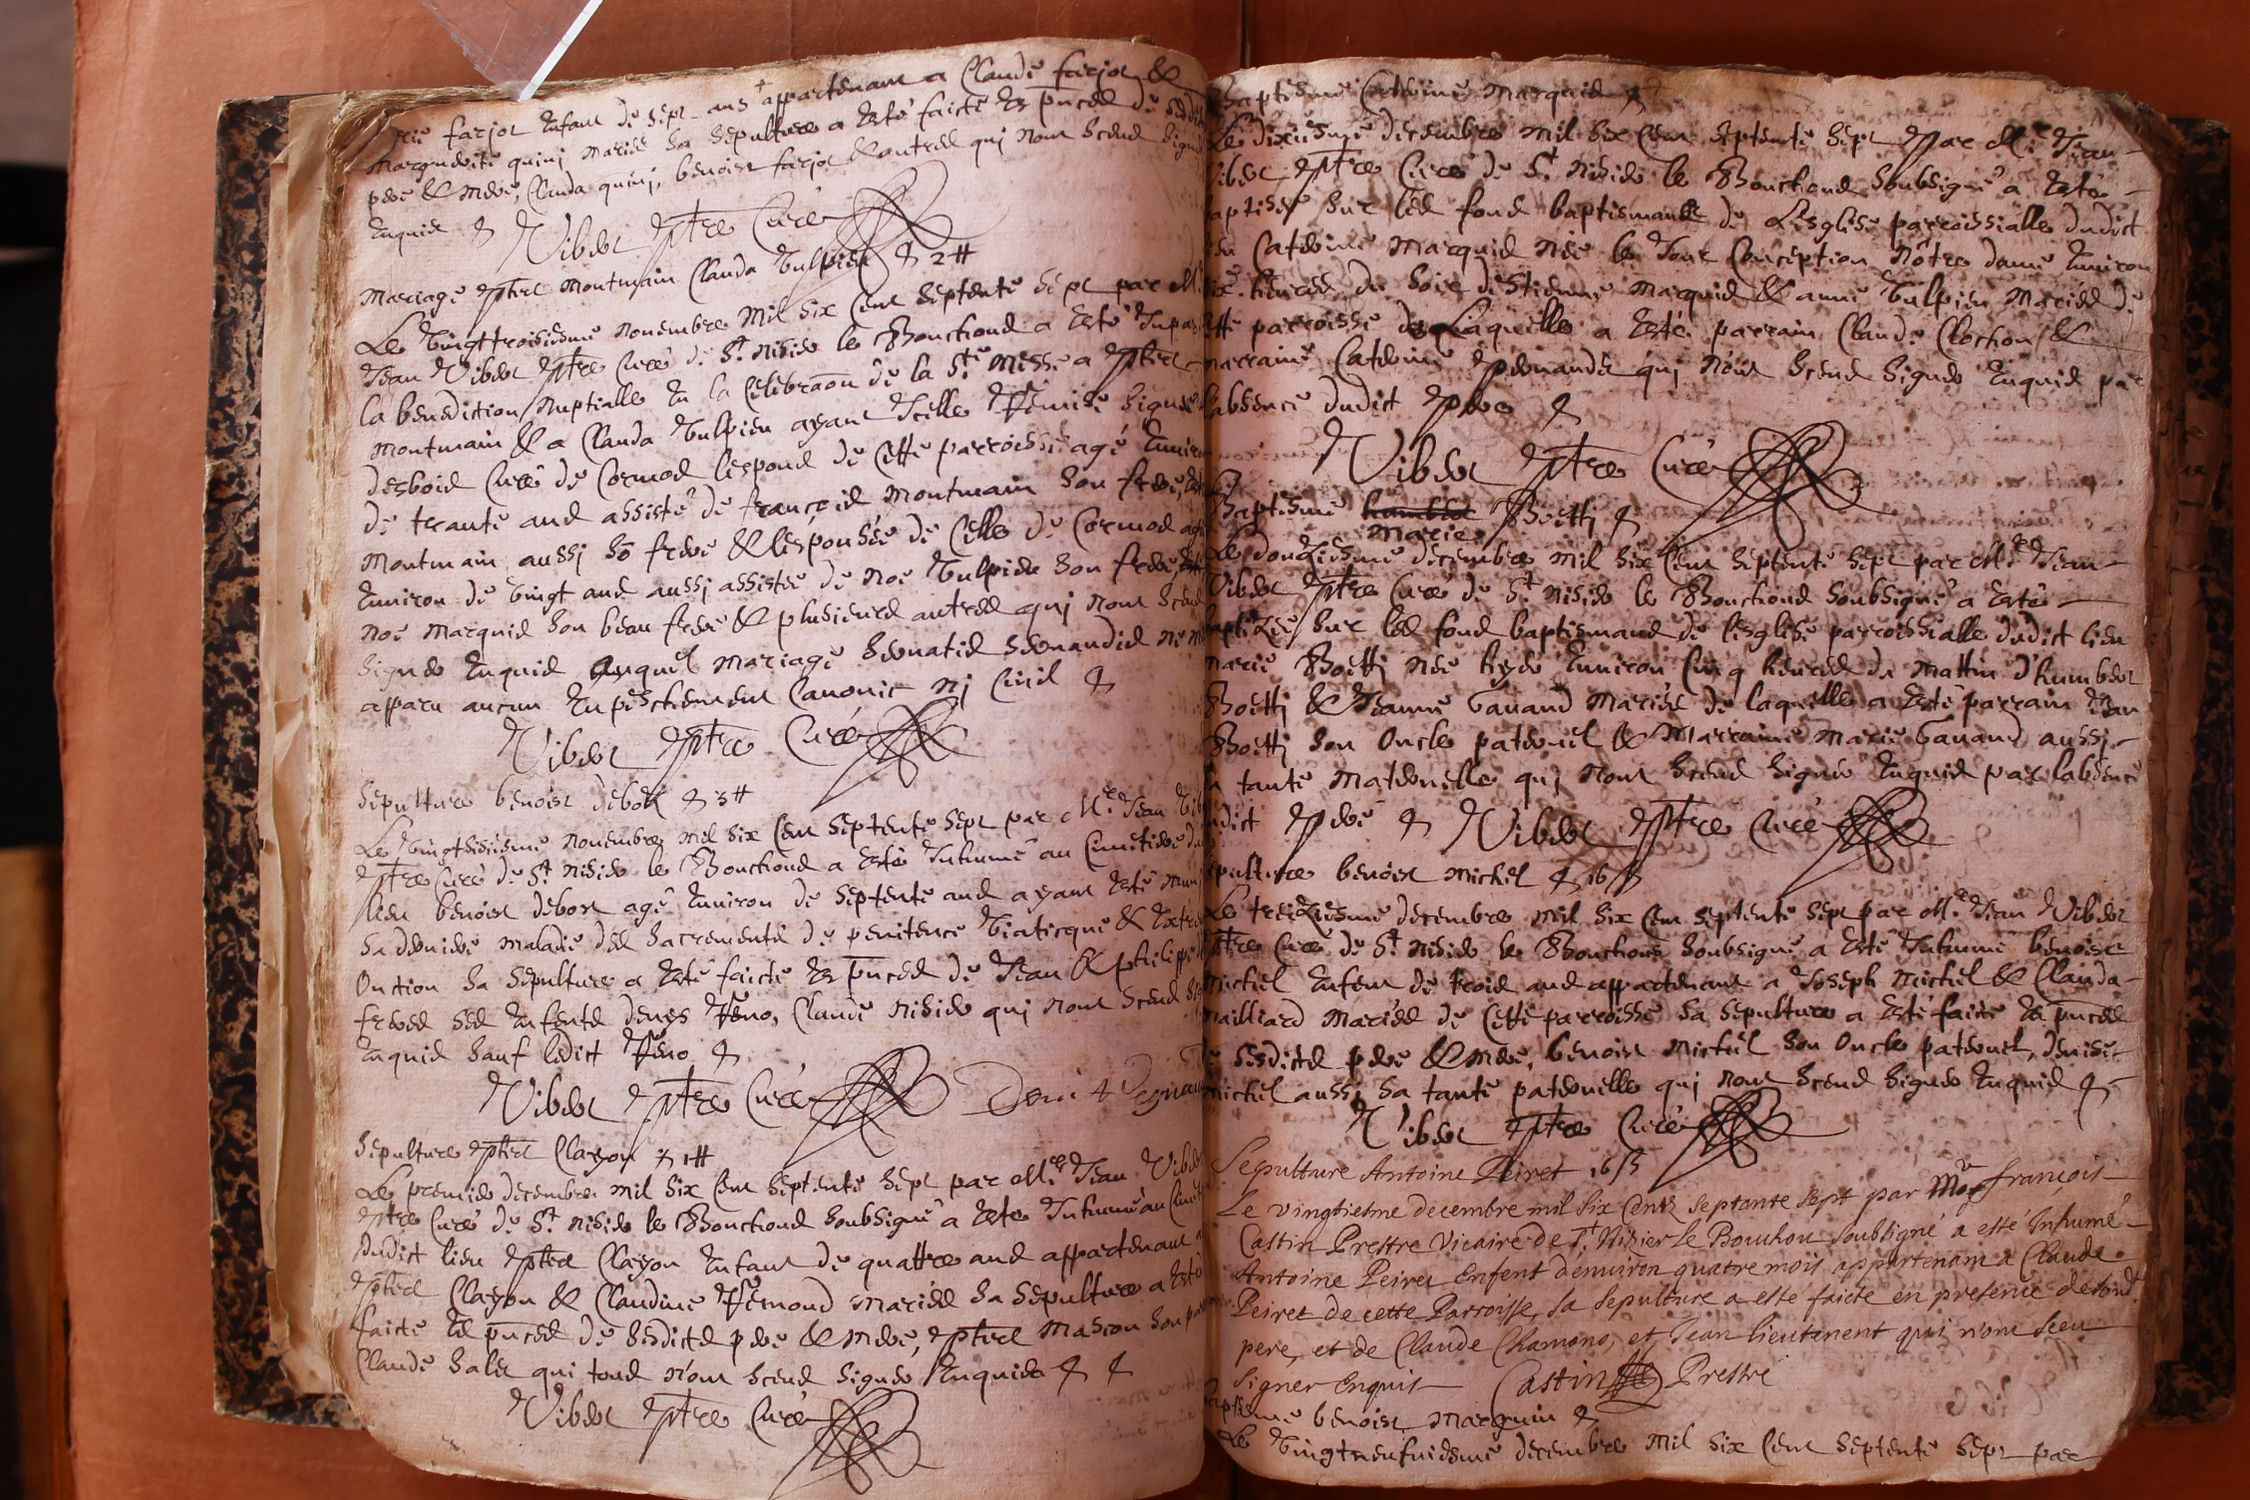 farjot Enfant de sept ans appartenant a Claude farjot &
Marguerite quinj mariés sa sepulture a esté faicte Es pnces de
pere & mere, Clauda quinj, benoist farjot & autres qui nont sceus signer
Enquis
Viber pbtre Curé
Mariage pbtre Montmain Clauda Vulpien 2 #
Le Vingttroisiesme novembre mil six cent septente sept par Mre
Jean Viber pbtre Curé de St nisier le Bouchoud a esté
la benediction nuptialle En la Celebraon de la Ste messe a
montmain & a Clauda Vulpien ayant Icelle signé
desbois Curé de Cormod lespoux de cette parroisse agé Environ
de trante ans assisté de françois montmain son frere,
Montmain aussj só frere & lespousée de Celle de Cormod
Environ de vingt ans aussj assistée de noé Vulpien son frere,
noé Marquis son beau frere & plusieurs autres quj nont sceus
signer Enquis auquel mariage
apparu aucun Enpeschement Canonic nj Civil
Viber pbtre Curé
Sepulture benoist debost 3 #
Le Vingtsisiesme novembre mil six cent septente sept par Mre Jean
pbtre Curé de St nisier le Bouchoud a esté Inhumé au Cimetiere
lieu benoist debost agé Environ de septente ans ayant esté
sa derniere maladie des sacrements de penitence Viaticque &
Onction sa sepulture a esté faicte Es pnces de Jean &
freres ses Enfents denys Claude nisier quj nont sceus
Enquis sauf ledict
Viber pbtre Curé
Sepulture Clayon 1 #
Le premier decembre mil six cent septente sept par Mre Jean Viber
pbtre Curé de St nisier le Bouchoud soubsigné a esté Inhumé au
dudict lieu Clayon Enfant de quattre ans appartenant a
Clayon & Claudine mariés sa sepulture a esté
faicte Es pnces de sesdicts pere & mere, Mascon son
Claude quj tous nont sceus signer Enquis
Viber pbtre Curé
Baptesme Caterine Marquis
Le dixiesme decembre mil six cent septente sept par Mre Jean
Viber pbtre Curé de St nisier le Bouchoud soubsigné a esté
baptisée sur les fons baptismaux de Lesglise parroissialle dudict
lieu Caterine Marquis née le Jour Conception Nôtre dame Environ
six heures du soir destienne Marquis & anne Vulpien mariés de
cette parroisse de Laquelle a esté parrain Claude Clochon &
marraine Caterine quj nont sceus signer Enquis par
labsence dudict pere
Viber pbtre Curé
Baptesme Marie Boettj
Le Douziesme decembre mil six cent septente sept par Mre Jean
Viber pbtre Curé de St nisier le Bouchoud soubsigné a esté
baptizée sur les fons baptismaux de lesglise parroissialle dudict lieu
Marie Boettj née hyer Environ Cinq heures du mattin d'humber
Boettj & Jeanne Gavand mariés de laquelle a esté parrain Jean
Boettj son Oncle paternel & Marraine Marie Gavand aussj
sa tante maternelle quj nont sceus signer Enquis par labsence
dudict pere Viber pbtre Curé
Sepulture benoist Michel 16 ß
Le treiziesme decembre mil six cent septente sept par Mre Jean Viber
pbtre Curé de St nisier le Bouchoud soubsigné a esté Inhumé benoist
Michel Enfent de trois ans appartenant a Joseph Michel & Clauda
mailliard mariés de cette parroisse sa sepulture a esté faicte Es pnces
de sesdicts pere & mere, benoist Michel son Oncle paternel, denise
Michel aussj sa tante paternelle quj nont sceus signer Enquis
Viber pbtre Curé
Sepulture Antoine Peiret 16 ß
Le vingtiesme decembre mil six Cents septante sept par Mre françois
Castin Prestre Vicaire de St Nizier le Bouchou soubsigné a esté Inhumé
Antoine Peiret Enfent denuiron quatre mois appartenant a Claude
Peiret de cette Parroisse, sa sepulture a esté faicte en presence de sond.
pere, et de Claude Chamono, et Jean lieutenent qui nont sceu
signer Enquis Castin Prestre
Baptesme benoist Marquis
Le Vingtneufuiesme decembre mil six cent septente sept par